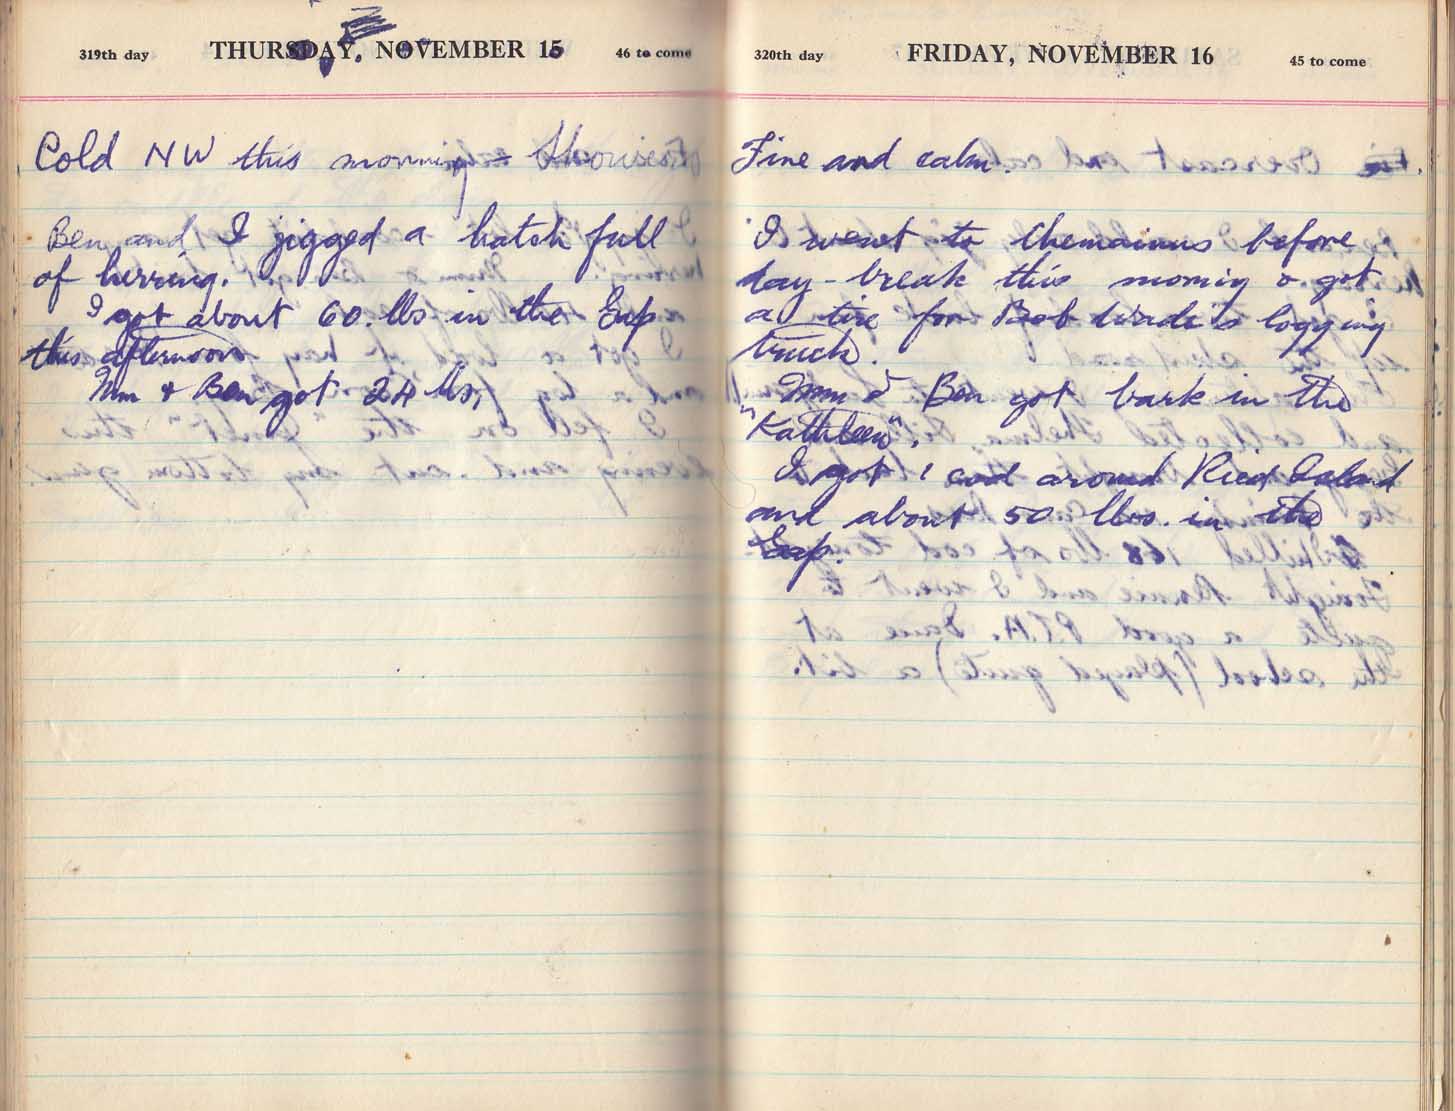 319th day THURSDAY, NOVEMBER 15 46 to come
Cold NW this morning
Ben and I jigged a hatch full
of herring.
I got about 60. lbs in the Gap
this afternoon
Mm & Ben got 24 lbs,
320th day FRIDAY, NOVEMBER 16 45 to come
Fine and calm.
I went to Chemainus before
day-break this morning & got
a tire for Bob Wade's logging
truck.
Mm & Ben got back in the
"Kathleen".
I got 1 cod around Island
and about 50 lbs. in the
Gap.